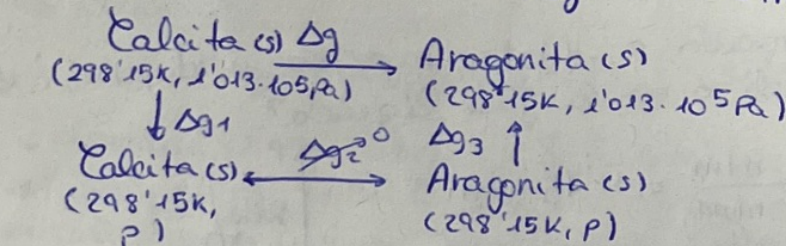 Calcita (s) Δg Aragonita (s)
(298'15K, 1'013·10⁵Pa) (298'15K, 1'013·10⁵Pa)
Δg1 Δg2 0 Δg3
Calcita (s) Aragonita (s)
(298'15K, (298'15K, p)
p)